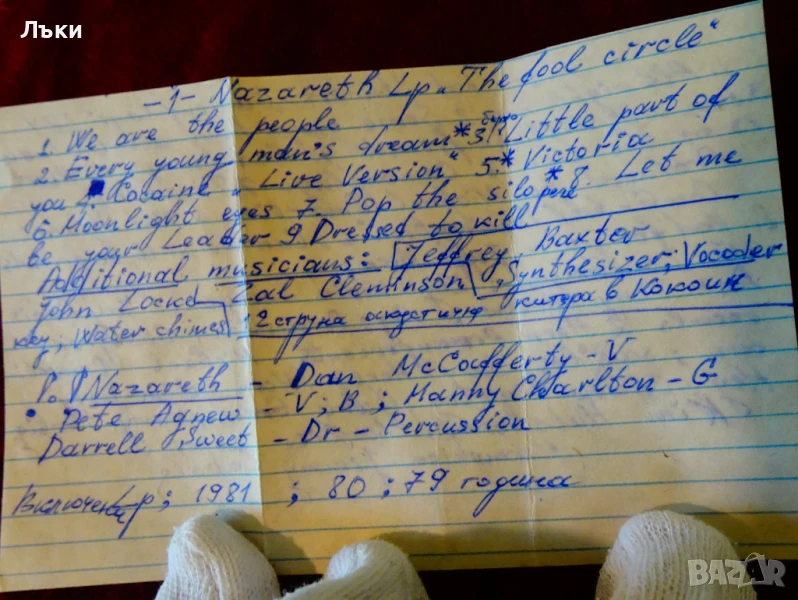 Лъки
-1- Nazareth Lp „The fool circle"
1. We are the people
2. Every young man's dream * 3. Little part of
you 4. Cocaine „Live Version" 5.* Victoria
6. Moonlight eyes 7. Pop the silo * 8. Let me
be your Leader 9. Dressed to kill
Additional musicians: Jeffrey Baxter
John Locke Zal Cleminson Synthesizer; Vocoder
key; Water chimes 12 струна акустична китара в Кокоин
Nazareth - Dan McCafferty - V
Pete Agnew - V; B; Manny Charlton - G
Darrell Sweet - Dr - Percussion
Lp; 1981 ; 80 ; 79 година
BAZAR